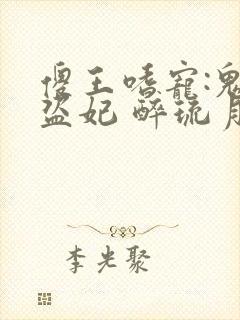 傻王嗜宠:鬼
盗妃 醉琉月
李光聚